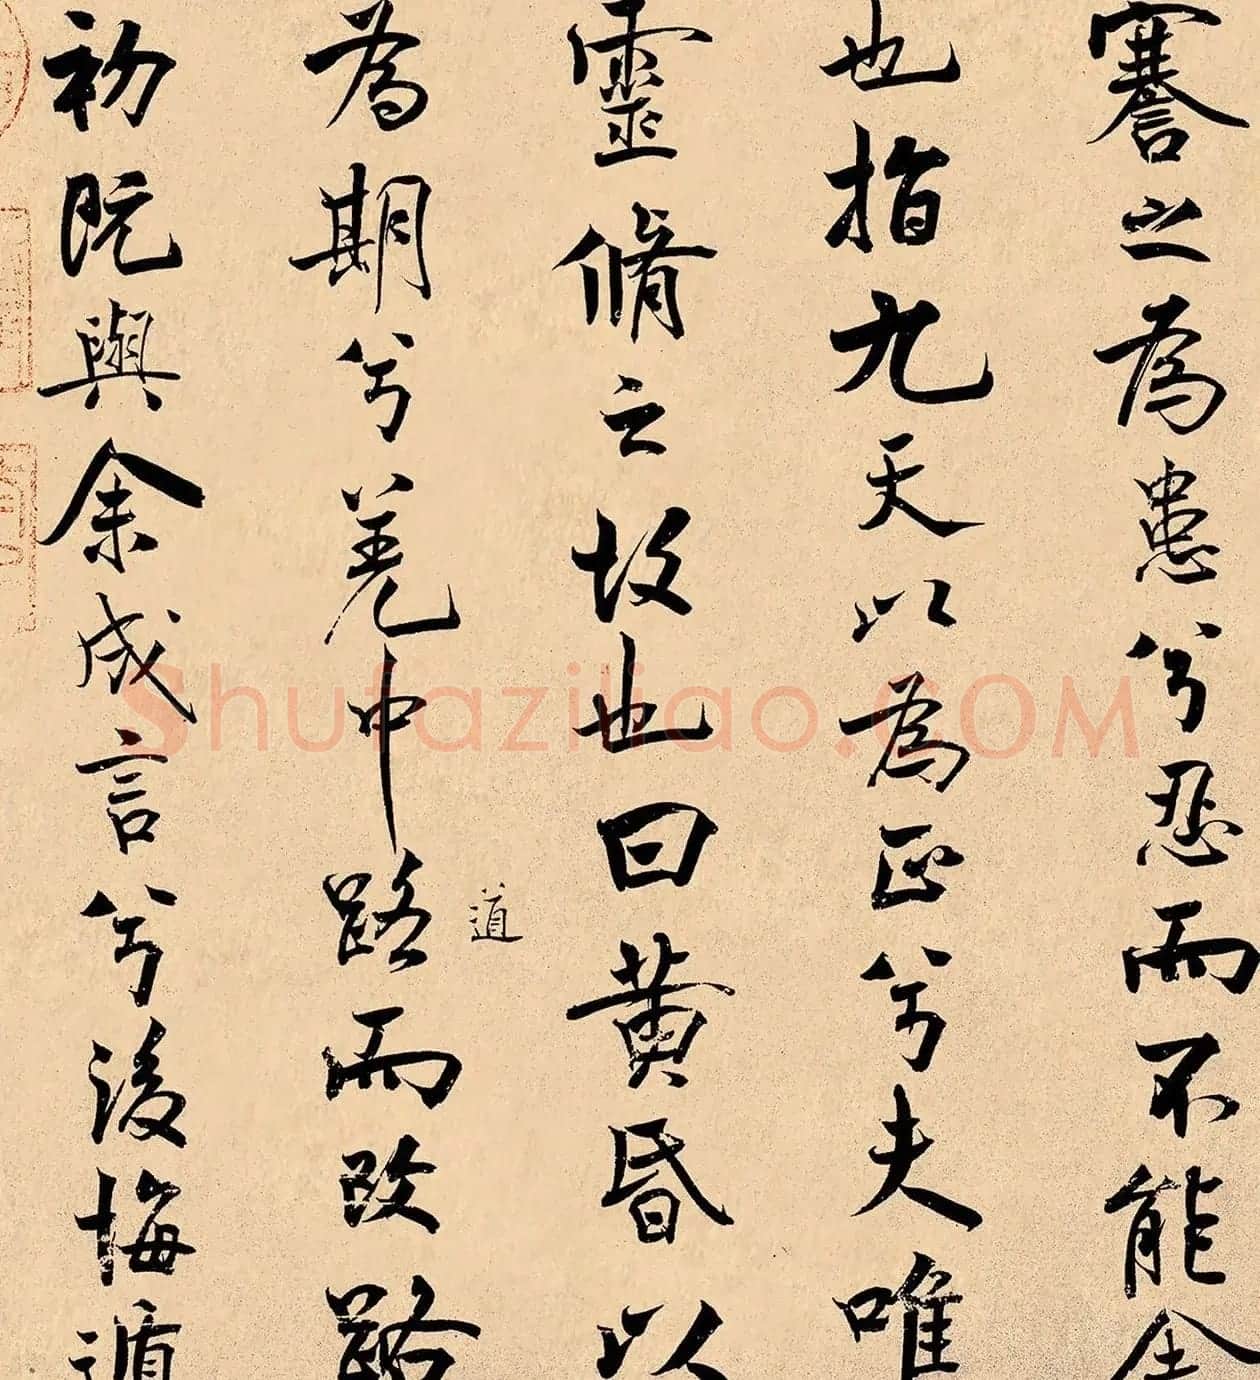 謇之為患兮忍而不能舍
也指九天以為正兮夫唯
靈脩之故也曰黄昏以
為期兮羌中路而改路
道
初既與余成言兮後悔遁
Shufaziliao.COM